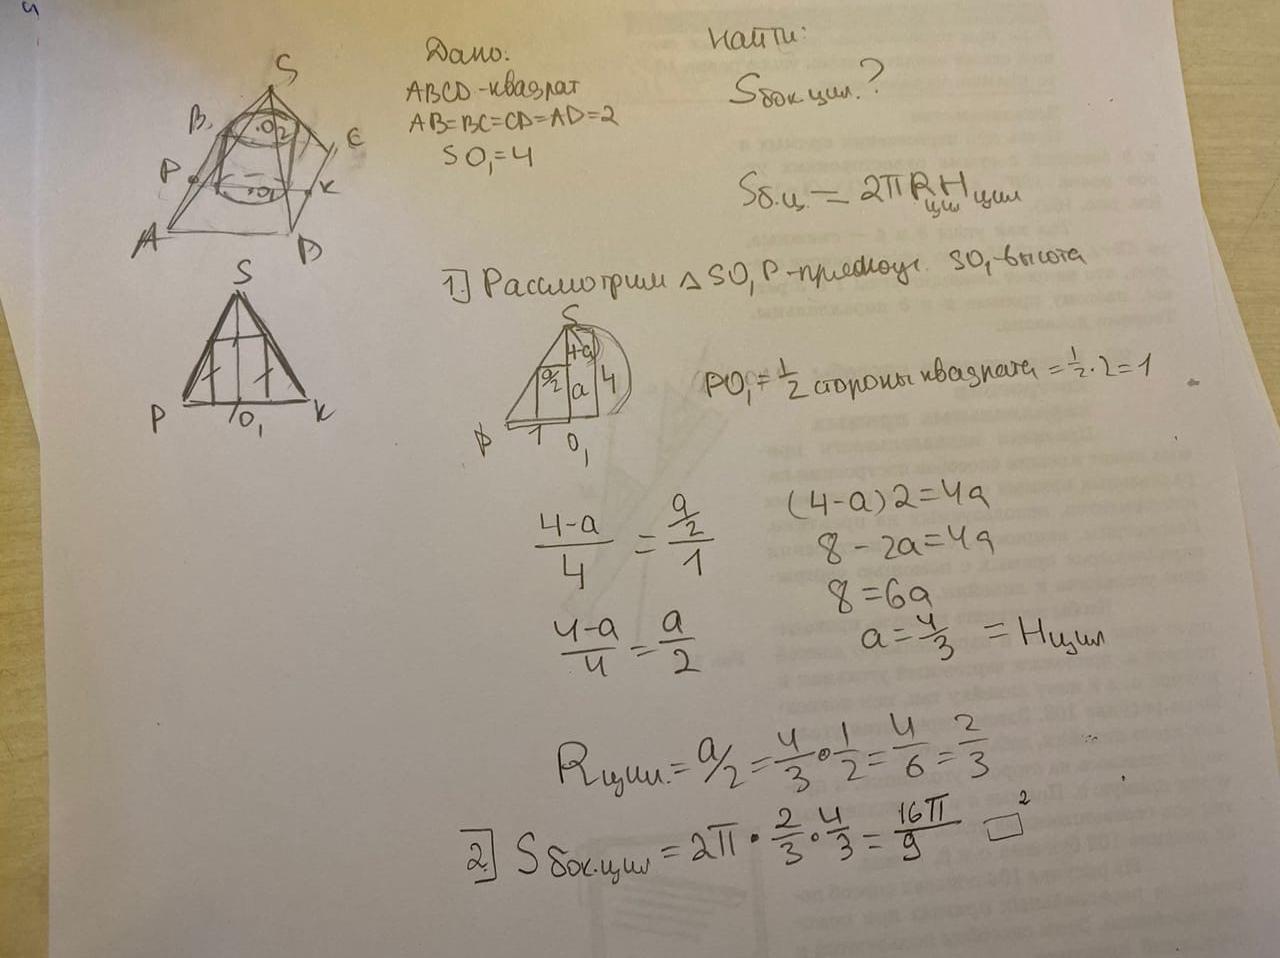 Дано:
ABCD-квадрат
AB=BC=CD=AD=2
SO₁=4
Найти:
Sбок цил.?
Sб.ц.=2πRцилHцил
S
B
O₂
C
P
O₁
K
A
D
S
P
O₁
K
1.] Рассмотрим △SO₁P-прямоуг. SO₁-высота
S
4-a
a/2
a
4
P
1
O₁
PO₁=1/2 стороны квадрата=1/2·2=1
(4-a)/4=(a/2)/1
(4-a)/4=a/2
(4-a)2=4a
8-2a=4a
8=6a
a=4/3=Hцил
Rцил.=a/2=4/3·1/2=4/6=2/3
2.] Sбок.цил=2π·2/3·4/3=16π/9 □²